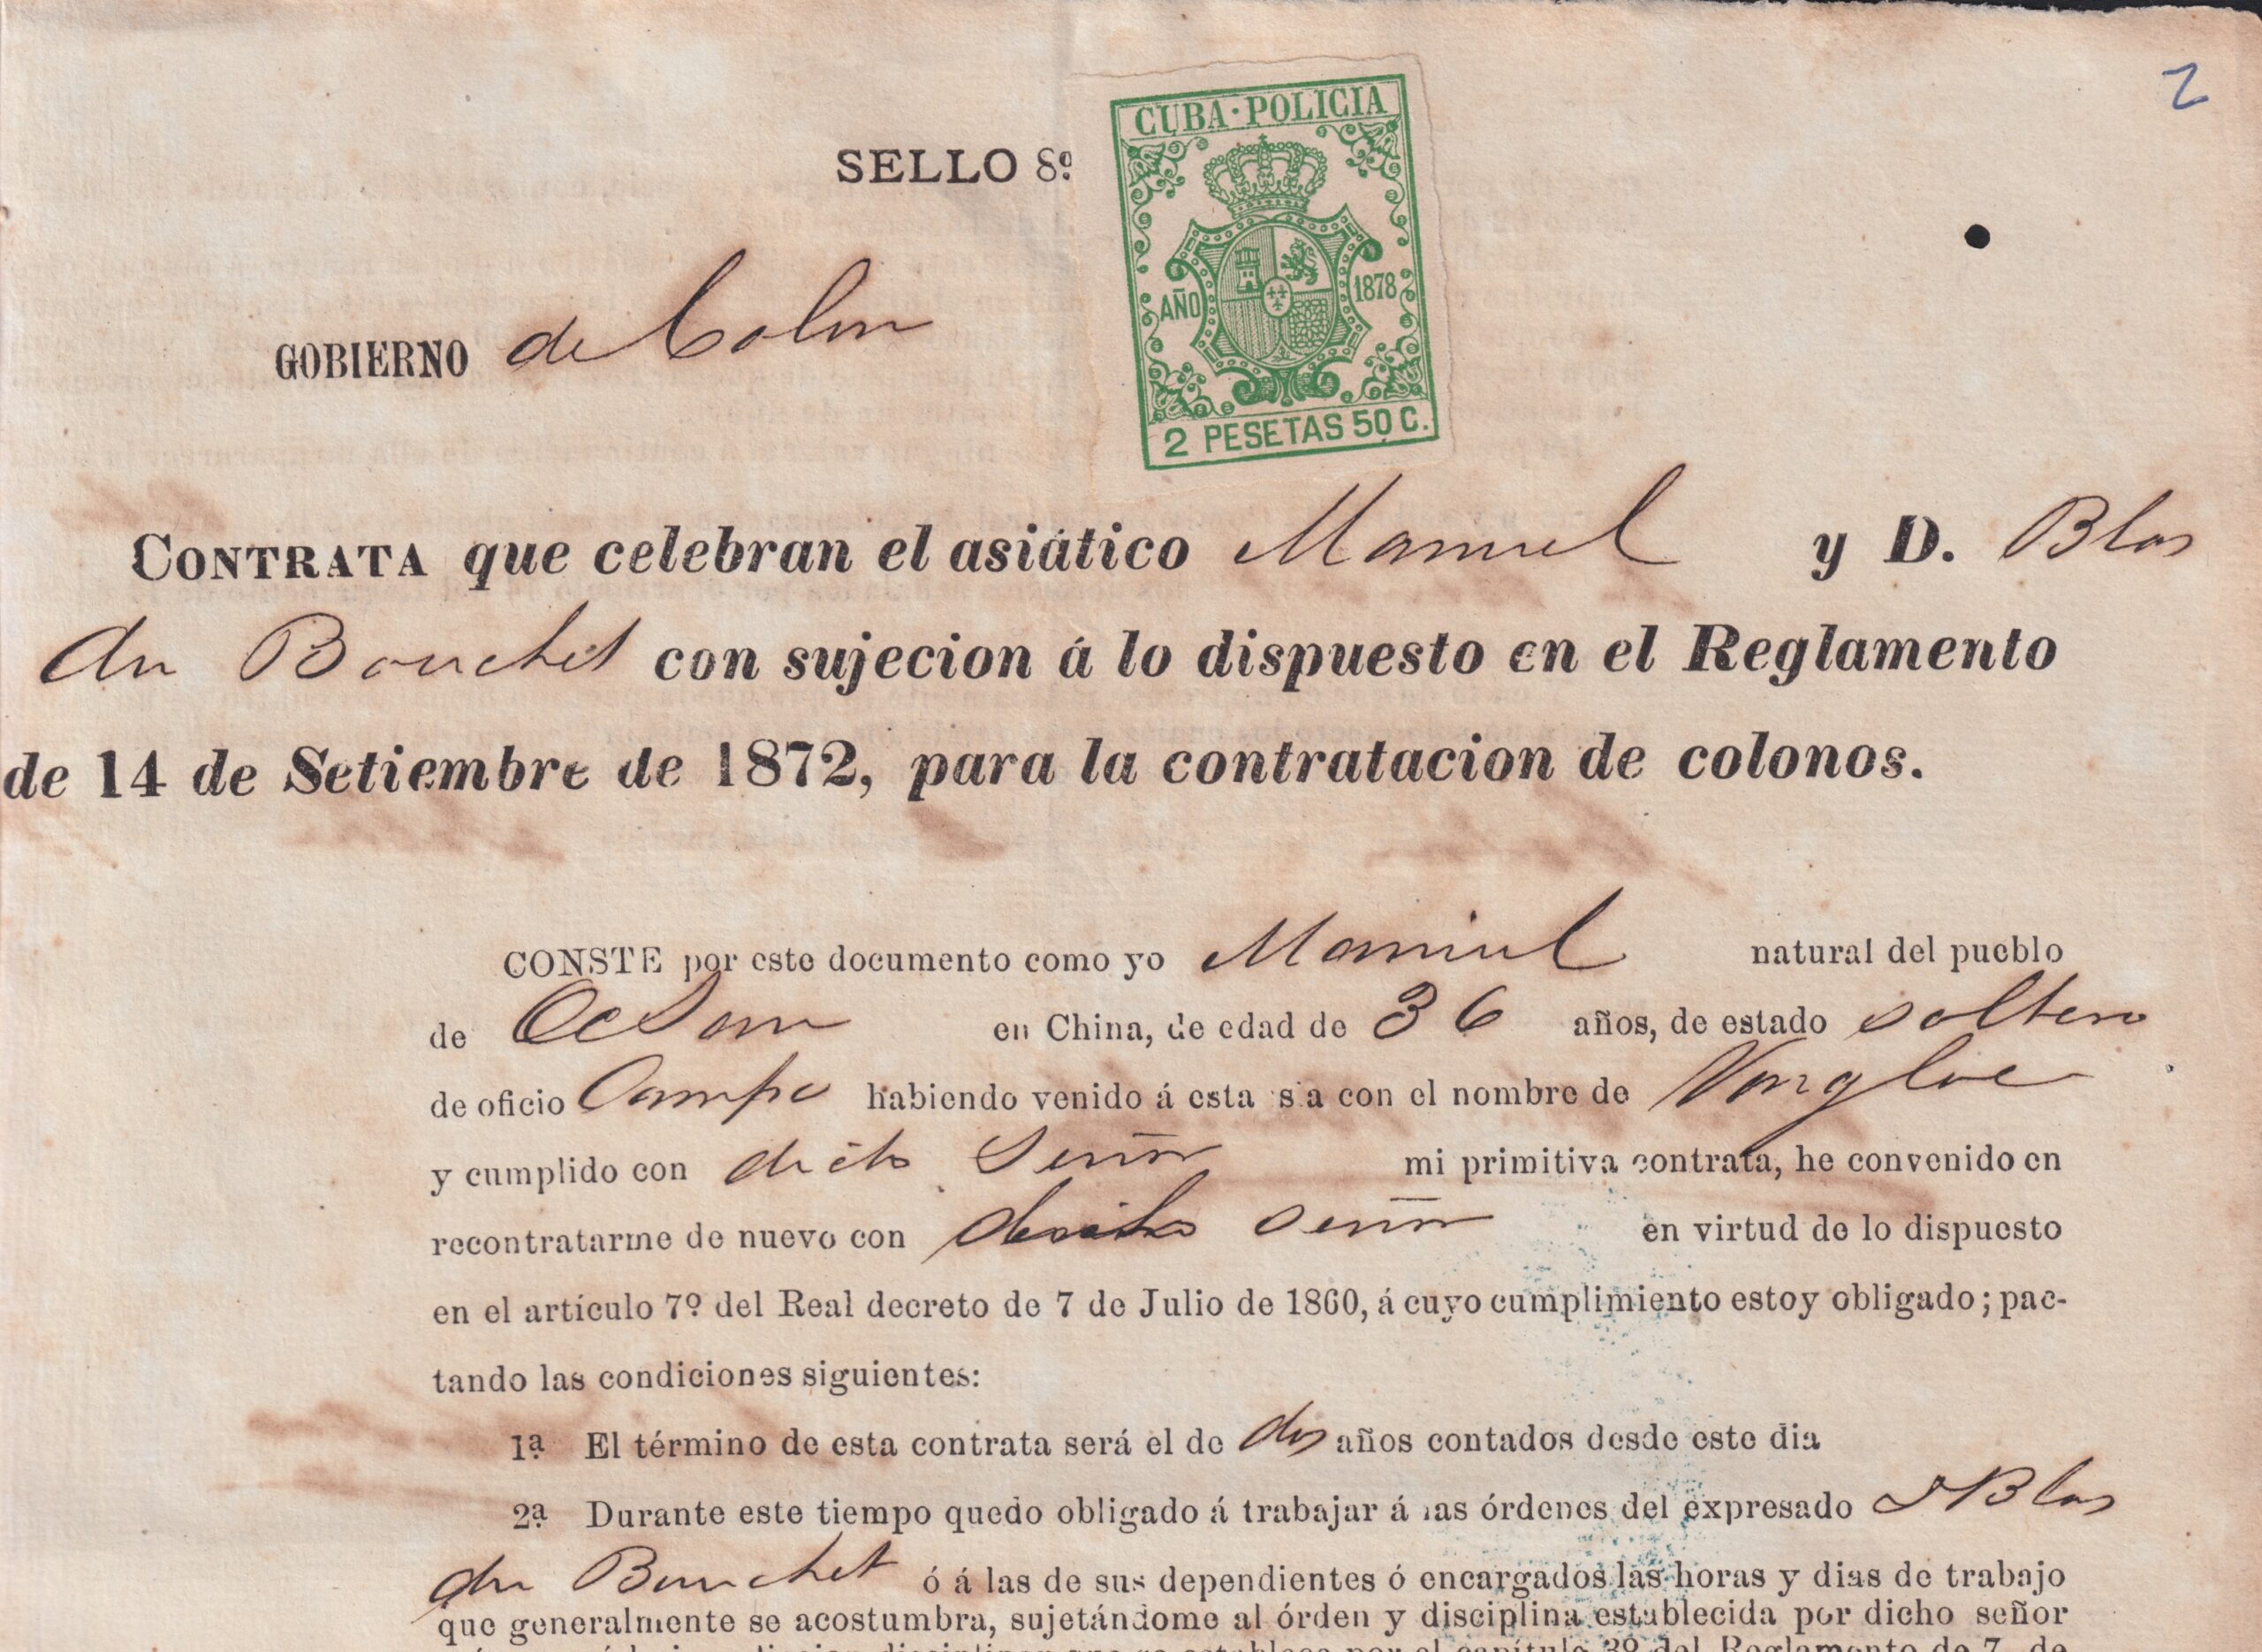 2
CUBA·POLICIA
SELLO 8º
AÑO 1878
GOBIERNO de Colon
2 PESETAS 50 C.
CONTRATA que celebran el asiático Manuel y D. Blas
du Bouchet con sujecion á lo dispuesto en el Reglamento
de 14 de Setiembre de 1872, para la contratacion de colonos.
CONSTE por este documento como yo Manuel natural del pueblo
de en China, de edad de 36 años, de estado soltero
de oficio Campo habiendo venido á esta s a con el nombre de
y cumplido con dicho Señor mi primitiva contrata, he convenido en
recontratarme de nuevo con dicho Señor en virtud de lo dispuesto
en el artículo 7º del Real decreto de 7 de Julio de 1860, á cuyo cumplimiento estoy obligado; pac-
tando las condiciones siguientes:
1ª El término de esta contrata será el de dos años contados desde este dia
2ª Durante este tiempo quedo obligado á trabajar á las órdenes del expresado D Blas
du Bouchet ó á las de sus dependientes ó encargados las horas y dias de trabajo
que generalmente se acostumbra, sujetándome al órden y disciplina establecida por dicho señor